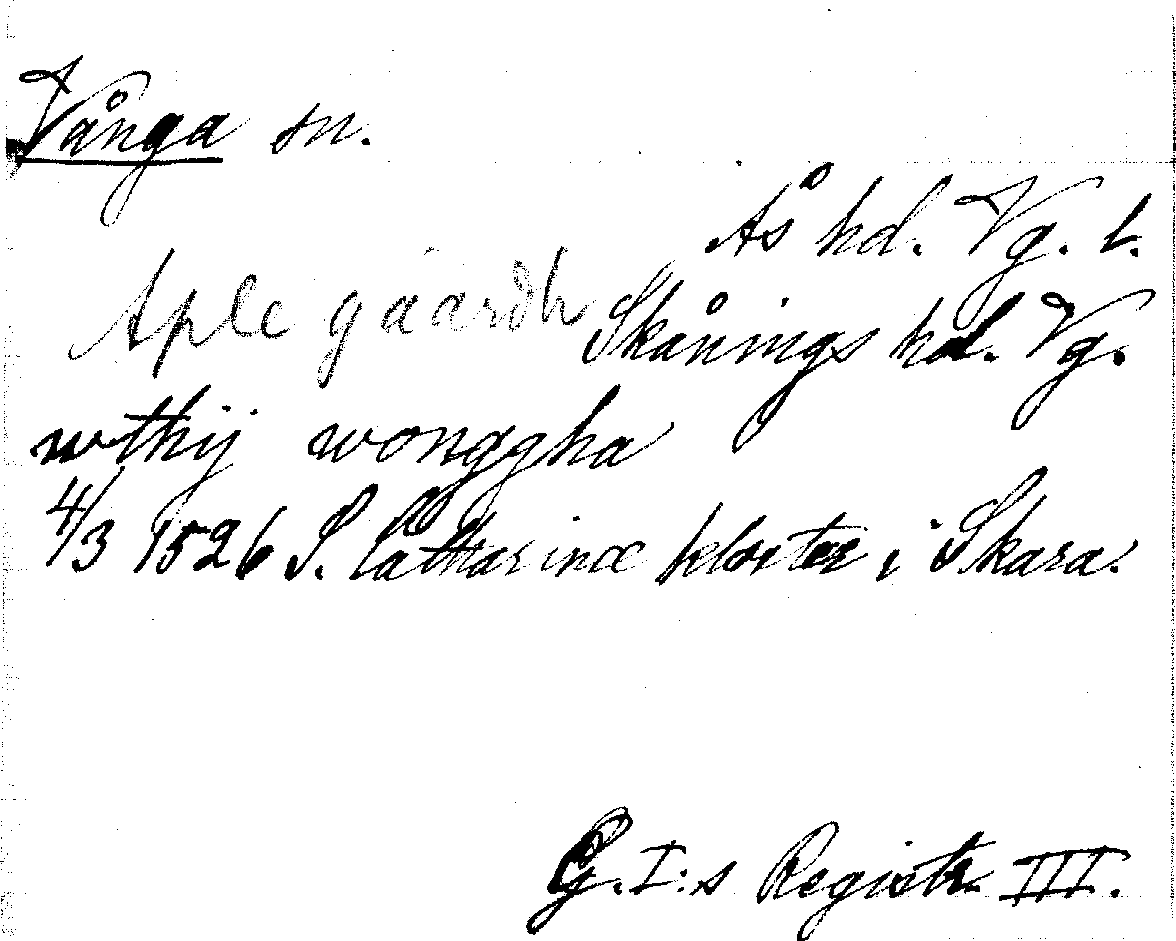 Vånga sn.
Ås hd. Vg. l.
Aple gaardh Skånings hd. Vg.
wthij wonggha
4/3 1526 S. Catharine kloster i Skara.
G. I:s Registr. III.